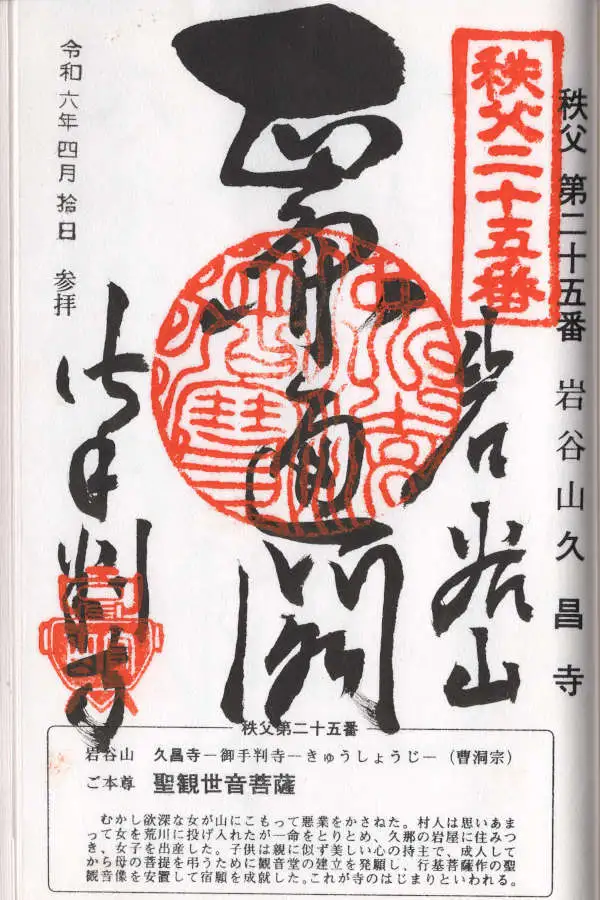 秩父 第二十五番 岩谷山 久昌寺
秩父二十五番
岩谷山
御手判寺
令和六年四月拾日 参拝
秩父第二十五番
岩谷山 久昌寺―御手判寺―きゅうしょうじ―（曹洞宗）
ご本尊 聖観世音菩薩
むかし欲深な女が山にこもって悪業をかさねた。村人は思いあま
って女を荒川に投げ入れたが一命をとりとめ、久那の岩屋に住みつ
き、女子を出産した。子供は親に似ず美しい心の持主で、成人して
から母の菩提を弔うために観音堂の建立を発願し、行基菩薩作の聖
観音像を安置して宿願を成就した。これが寺のはじまりといわれる。